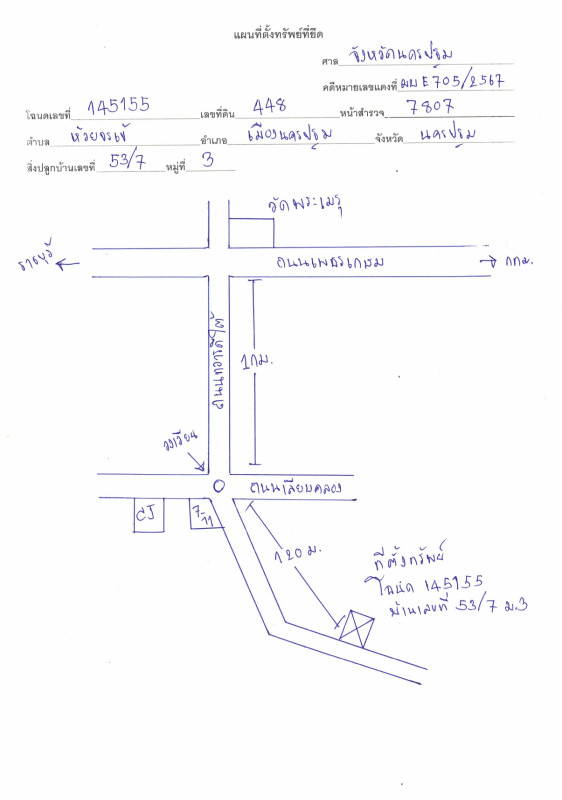 แผนที่ตั้งทรัพย์ที่ยึด
ศาล จังหวัดนครปฐม
คดีหมายเลขแดงที่ ผบE705/2567
โฉนดเลขที่ 145155 เลขที่ดิน 448 หน้าสำรวจ 7807
ตำบล ห้วยจรเข้ อำเภอ เมืองนครปฐม จังหวัด นครปฐม
สิ่งปลูกบ้านเลขที่ 53/7 หมู่ที่ 3
วัดพระเมรุ
ราชบุรี
ถนนเพชรเกษม
กทม.
ถนนทวารดีใต้
1กม.
วงเวียน
ถนนเลียบคลอง
CJ
7-11
120 ม.
ที่ตั้งทรัพย์
โฉนด 145155
บ้านเลขที่ 53/7 ม.3